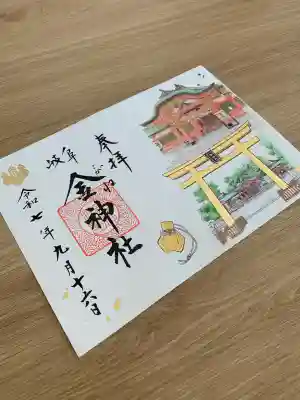 奉拝
岐阜
金神社
令和七年九月十六日